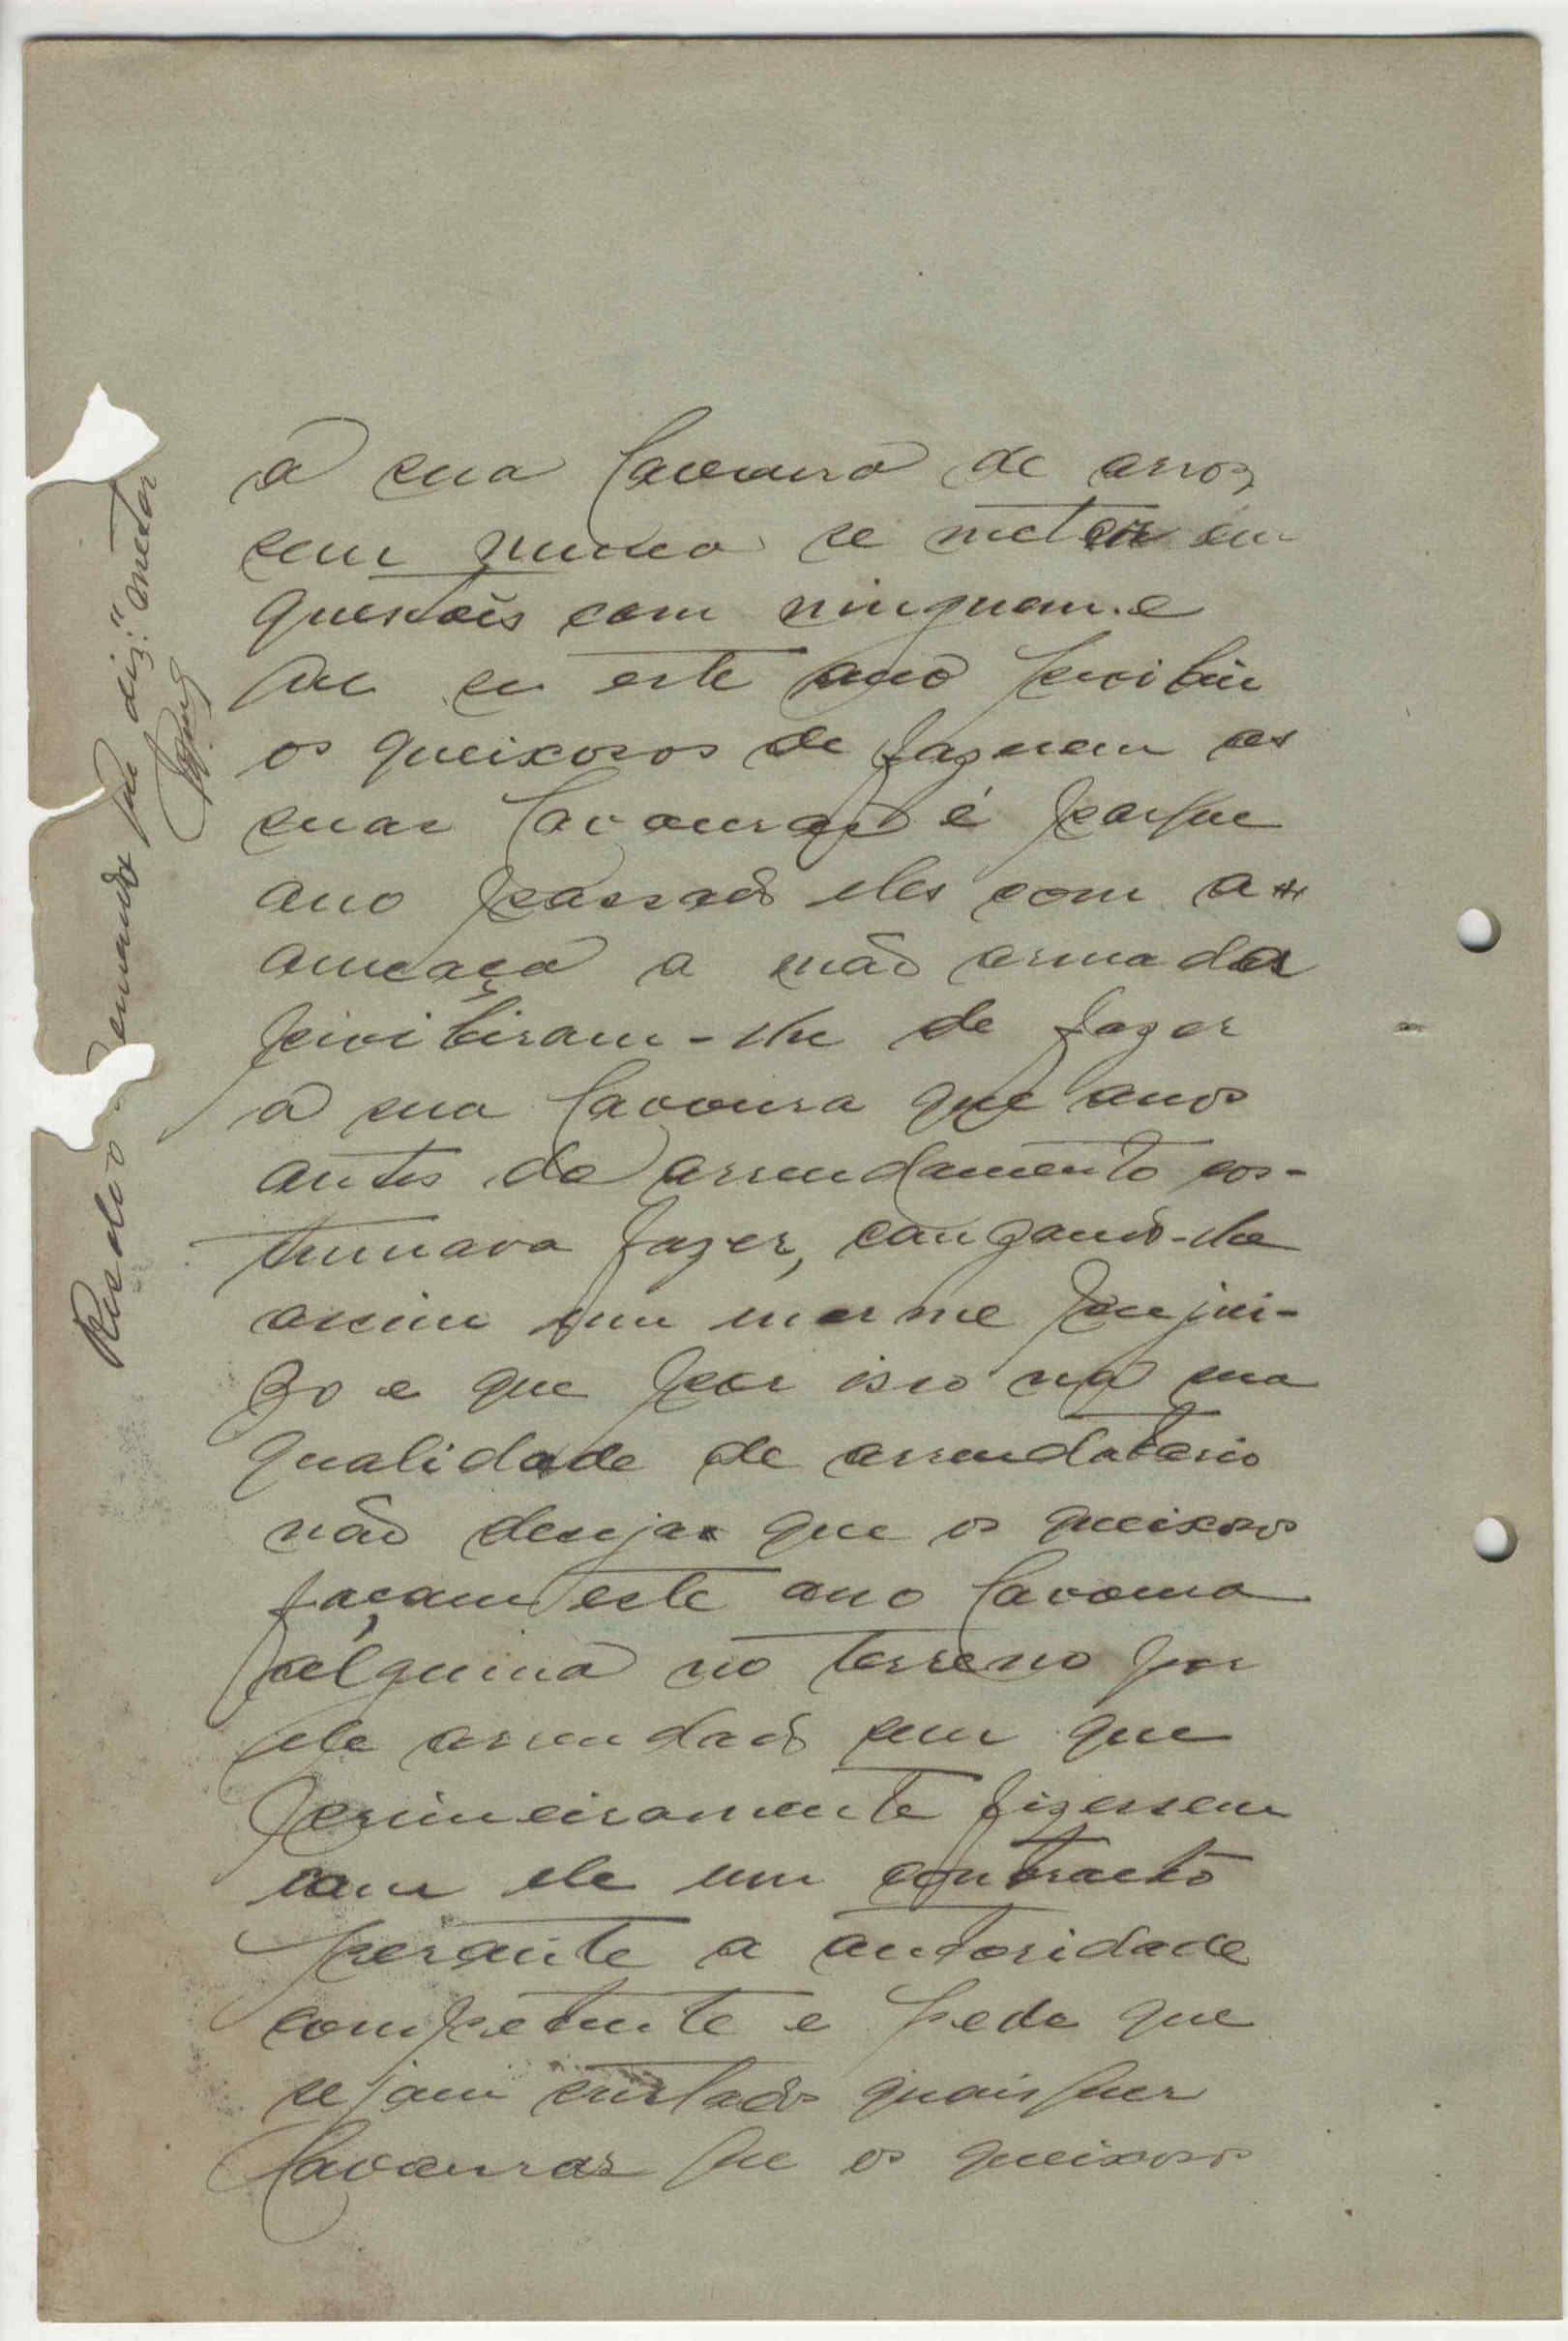 a sua lavoura de arroz
sem nunca se meter em
questõis com ninguem. e
que se este ano proibiu
os queixosos de fazerem as
suas lavouras é porque
ano passado eles com a
ameaça a mão armada
proibiram-lhe de fazer
a sua lavoura que anos
antes do arrendamento cos-
tumava fazer, cauzando-lhe
assim um enorme prejui-
zo e que por isso na sua
qualidade de arrendatario
não deseja que os queixosos
façam este ano lavoura
alguma no terreno por
ele arrendado sem que
primeiramente fizessem
com ele um contracto
perante a autoridade
competente e pede que
sejam
quaisquer
lavouras que os queixosos
Resalvo emenda que diz: "meter